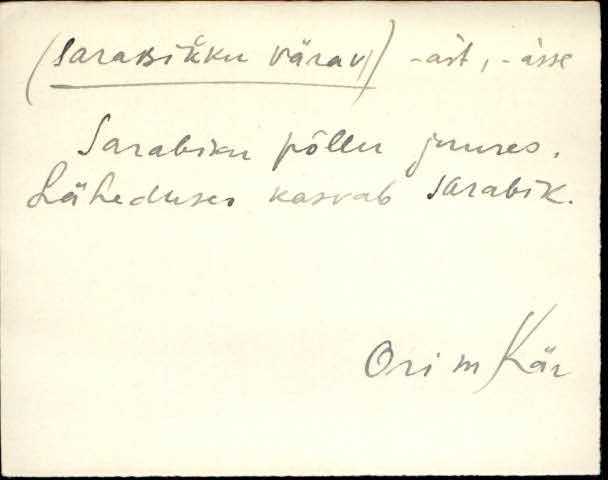 (saraʙik̆ku värav) -ast, -asse
Sarabiku põllu juures.
Läheduses kasvab sarabik.
Ori m Kär